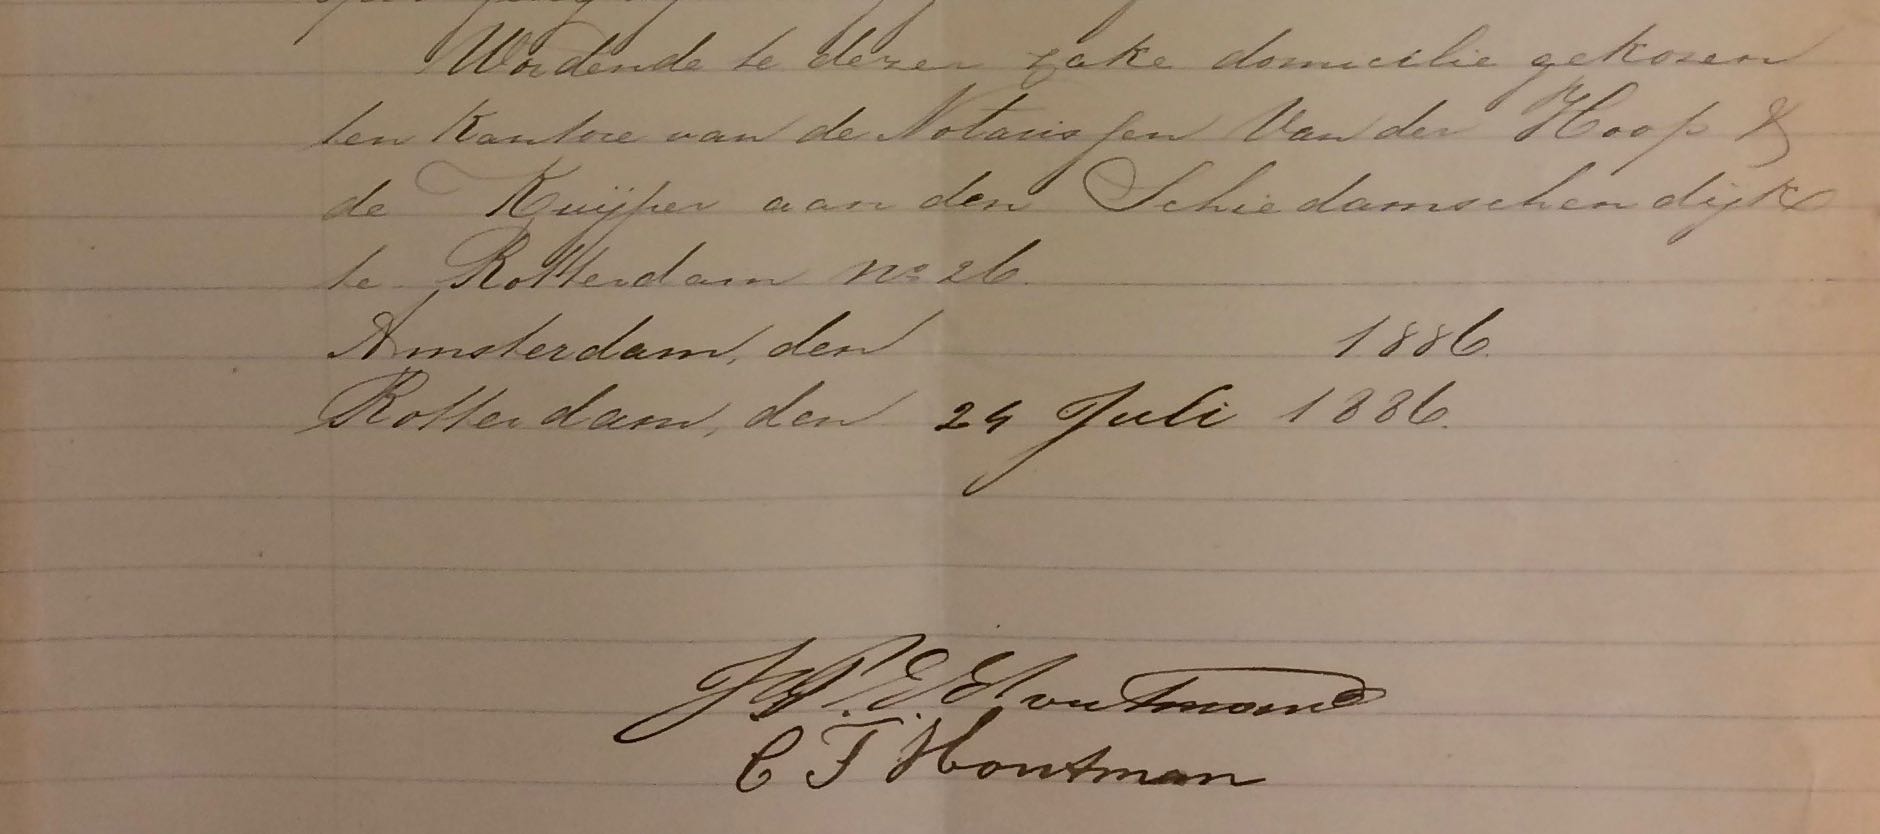 Wordende te dezer zake domicilie gekozen
ten kantore van de Notarissen Van der Hoop &
de Kuijper aan den Schiedamschen dijk
te Rotterdam no 26.
Amsterdam, den 1886.
Rotterdam, den 24 Juli 1886.
Houtman
C F Houtman